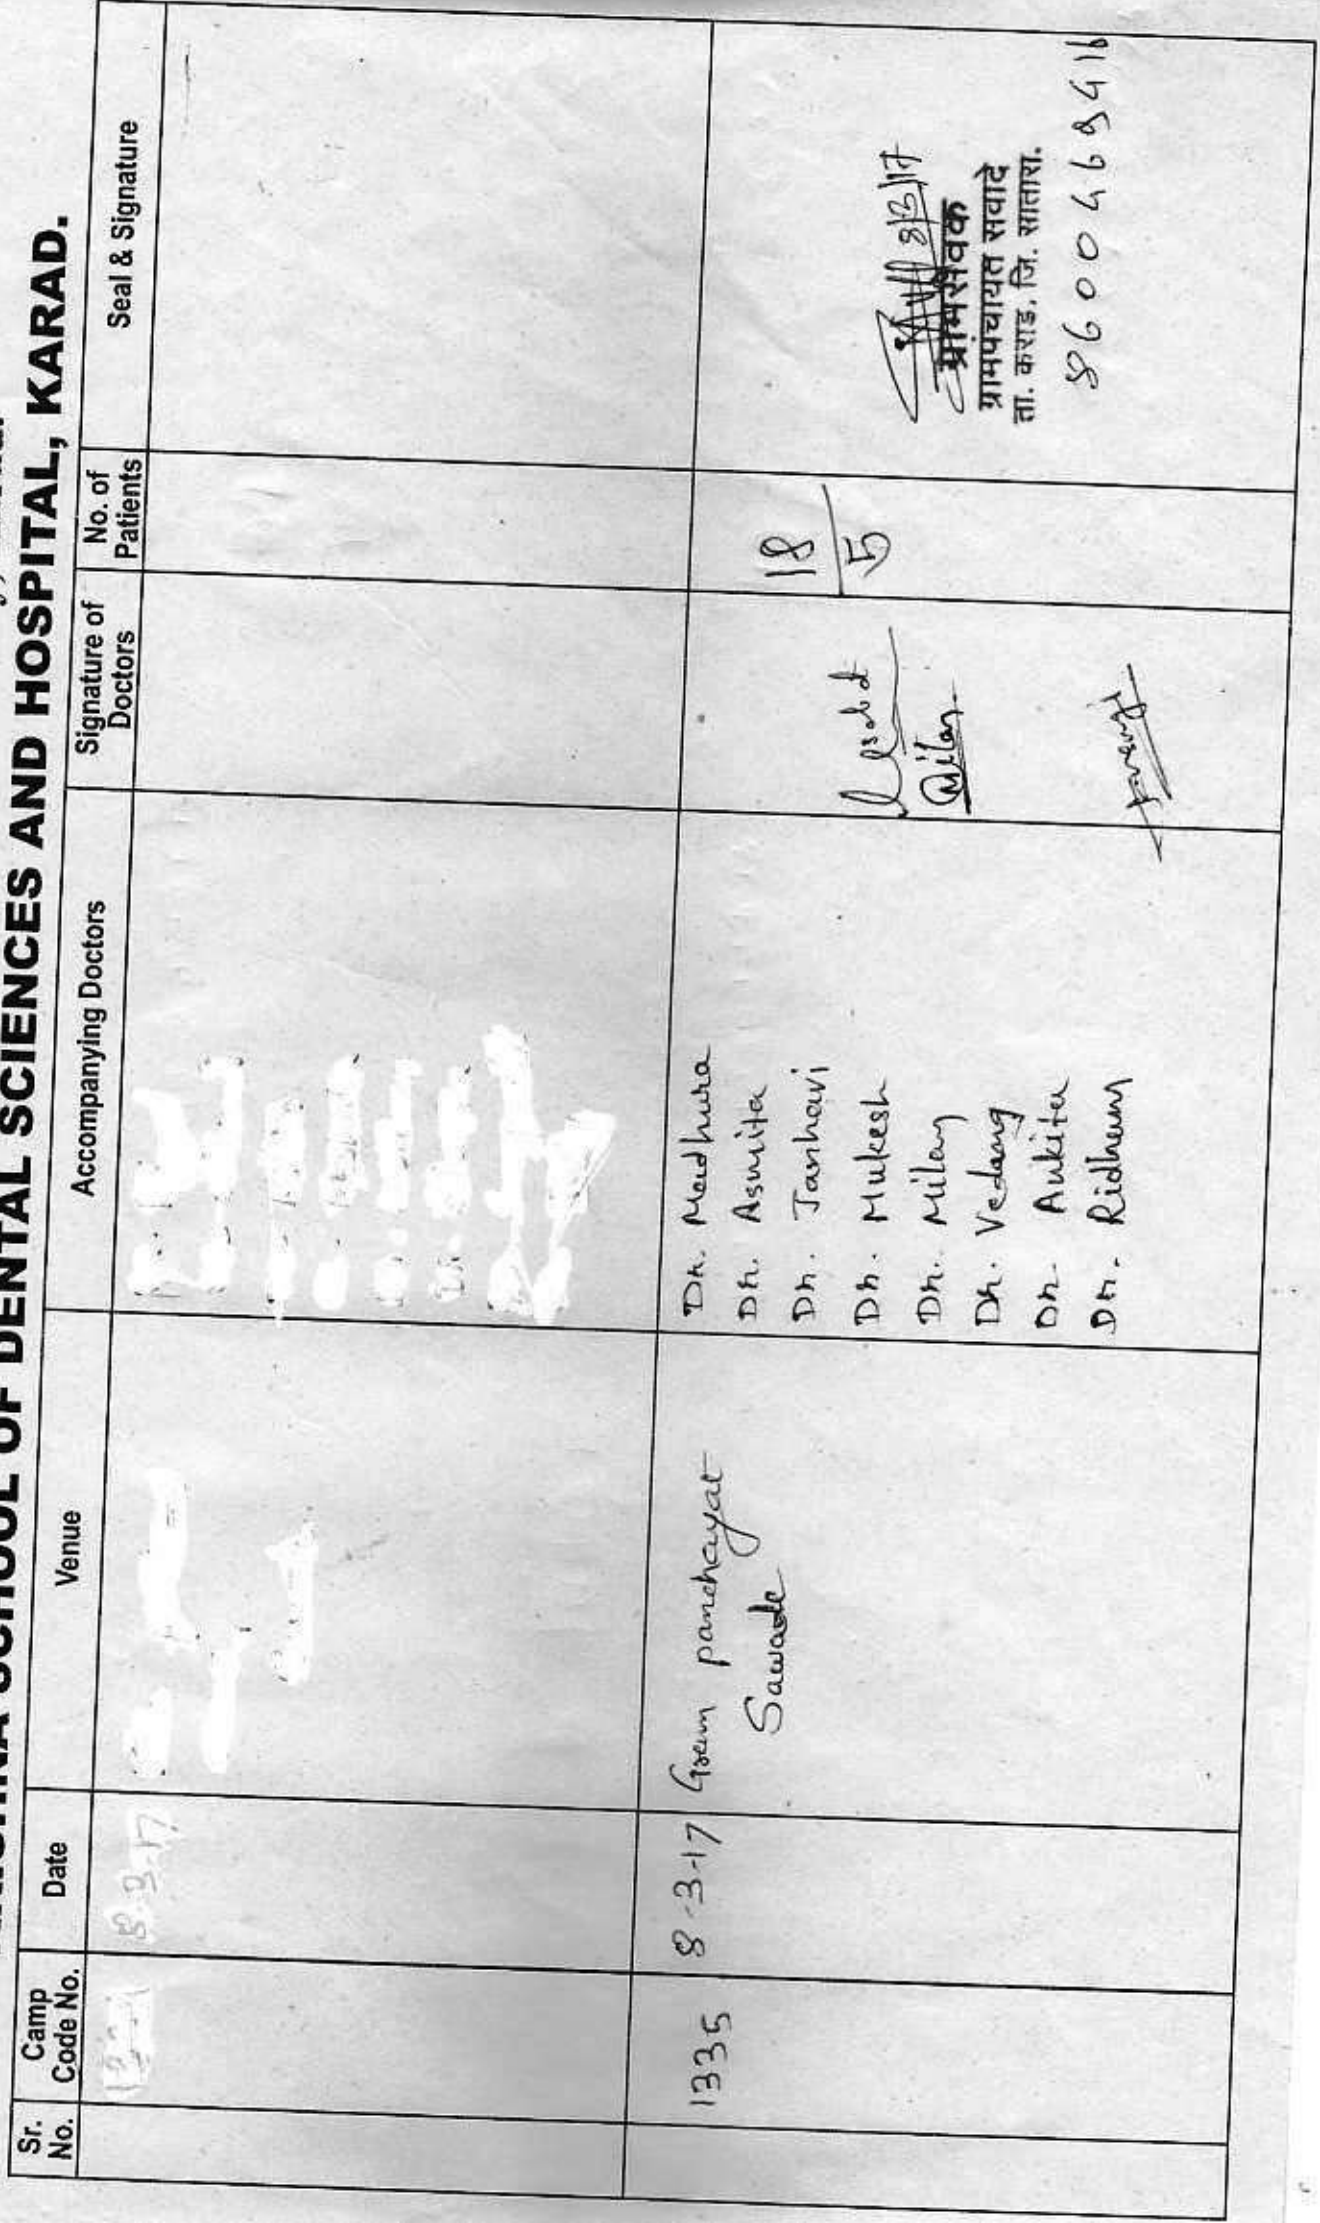 SCHOOL OF DENTAL SCIENCES AND HOSPITAL, KARAD.
Sr. No.
Camp Code No.
Date
Venue
Accompanying Doctors
Signature of Doctors
No. of Patients
Seal & Signature
8-3-17
1335
8-3-17
Gram panchayat
Sawade
Dr. Madhura
Dr. Asmita
Dr. Janhavi
Dr. Mukesh
Dr. Milan
Dr. Vedang
Dr. Ankita
Dr. Ridham
Milan
18
5
8/3/17
ग्रामसेवक
ग्रामपंचायत सवादे
ता. कराड, जि. सातारा.